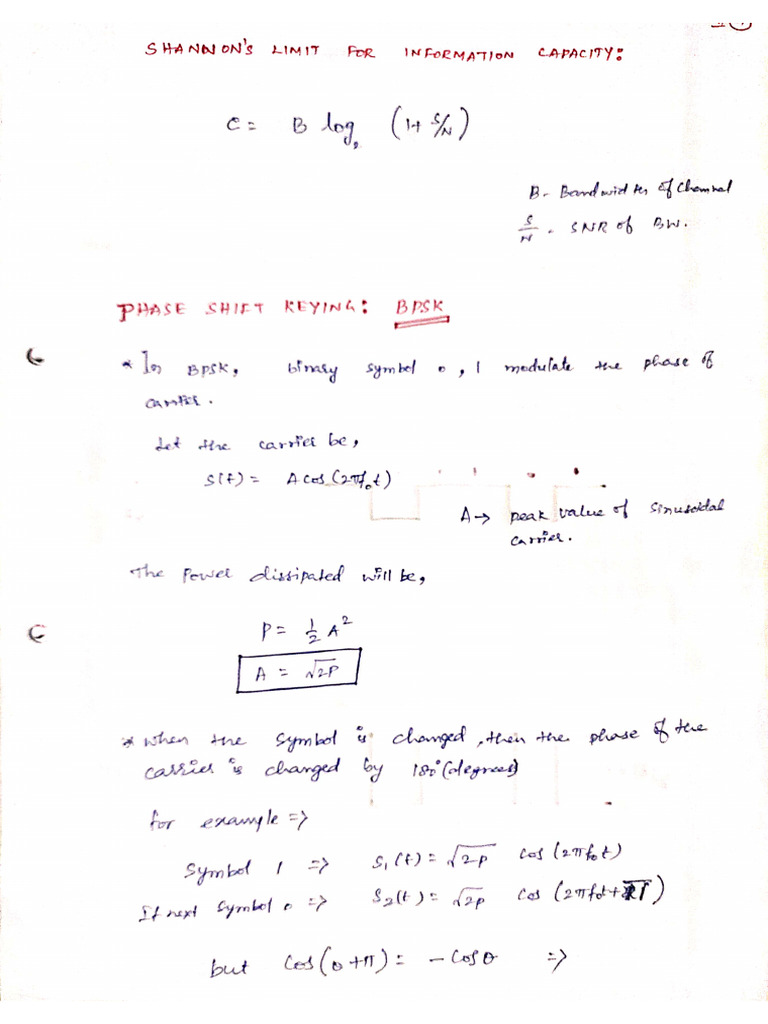 SHANNON'S LIMIT FOR INFORMATION CAPACITY:
C = B log₂ (1+ S/N)
B - Bandwidth of Channel
S/N - SNR of BW.
PHASE SHIFT KEYING: BPSK
* In BPSK, binary symbol 0, 1 modulate the phase of
carrier.
Let the carrier be,
S(t) = A cos (2πf₀t)
A → peak value of sinusoidal
carrier.
The Power dissipated will be,
P = 1/2 A²
A = √2P
* When the symbol is changed, then the phase of the
carrier is changed by 180° (degrees)
for example ⇒
Symbol 1 ⇒ S₁(t) = √2P cos (2πf₀t)
If next Symbol 0 ⇒ S₂(t) = √2P cos (2πf₀t+π)
but cos(θ+π) = - cosθ ⇒